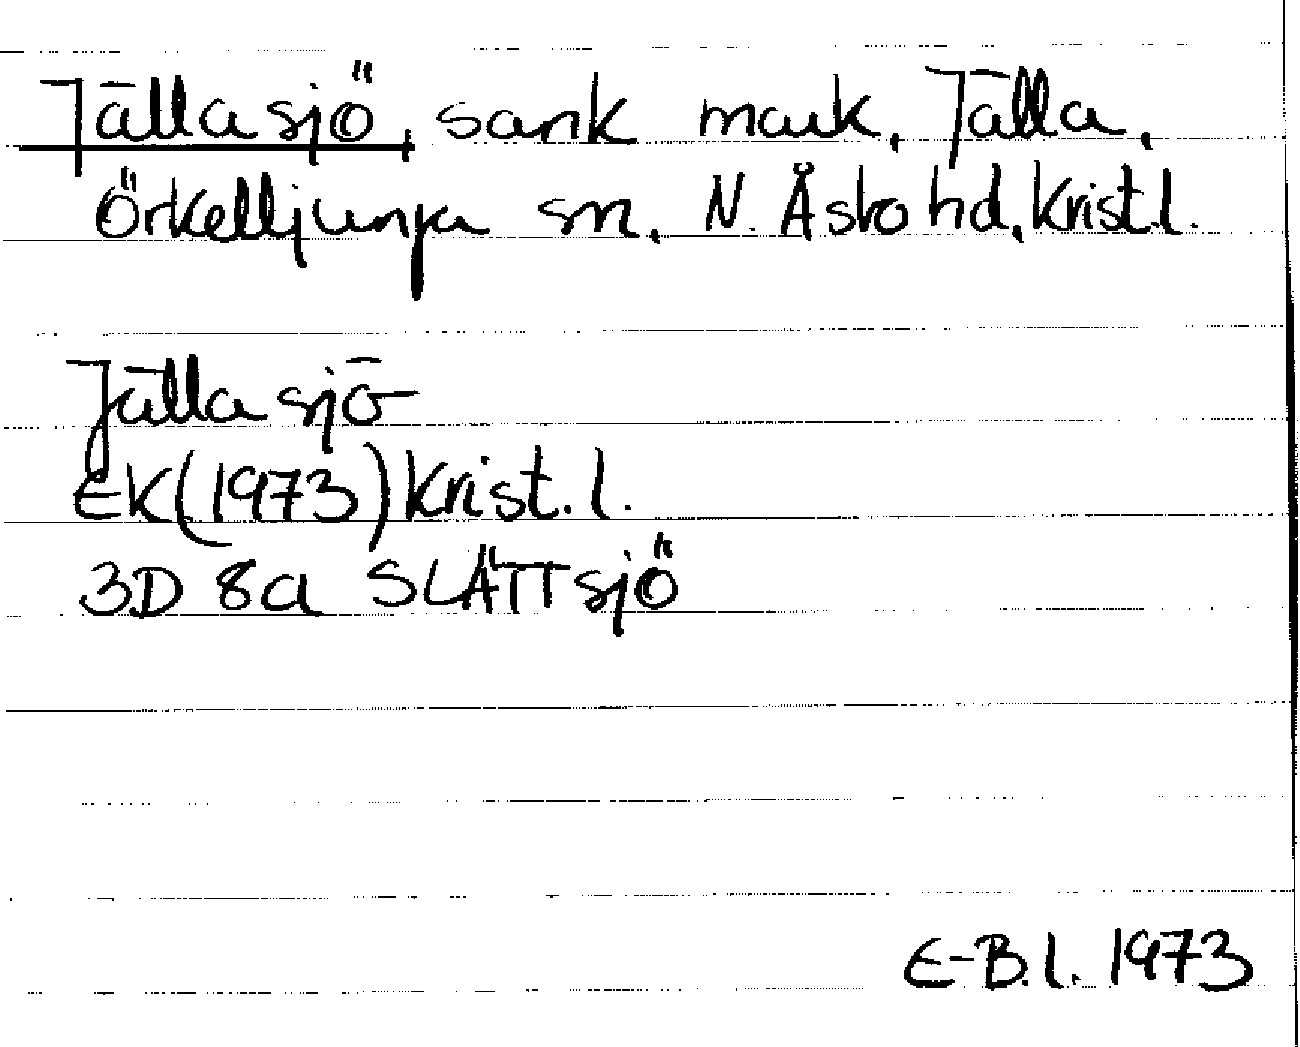 Jälla sjö, sank mark, Jälla,
Örkelljunga sn, N. Åsbo hd, Krist.l.
Jälla sjö
EK(1973) Krist. l.
3D 8a SLÄTTsjö
E-B.l. 1973